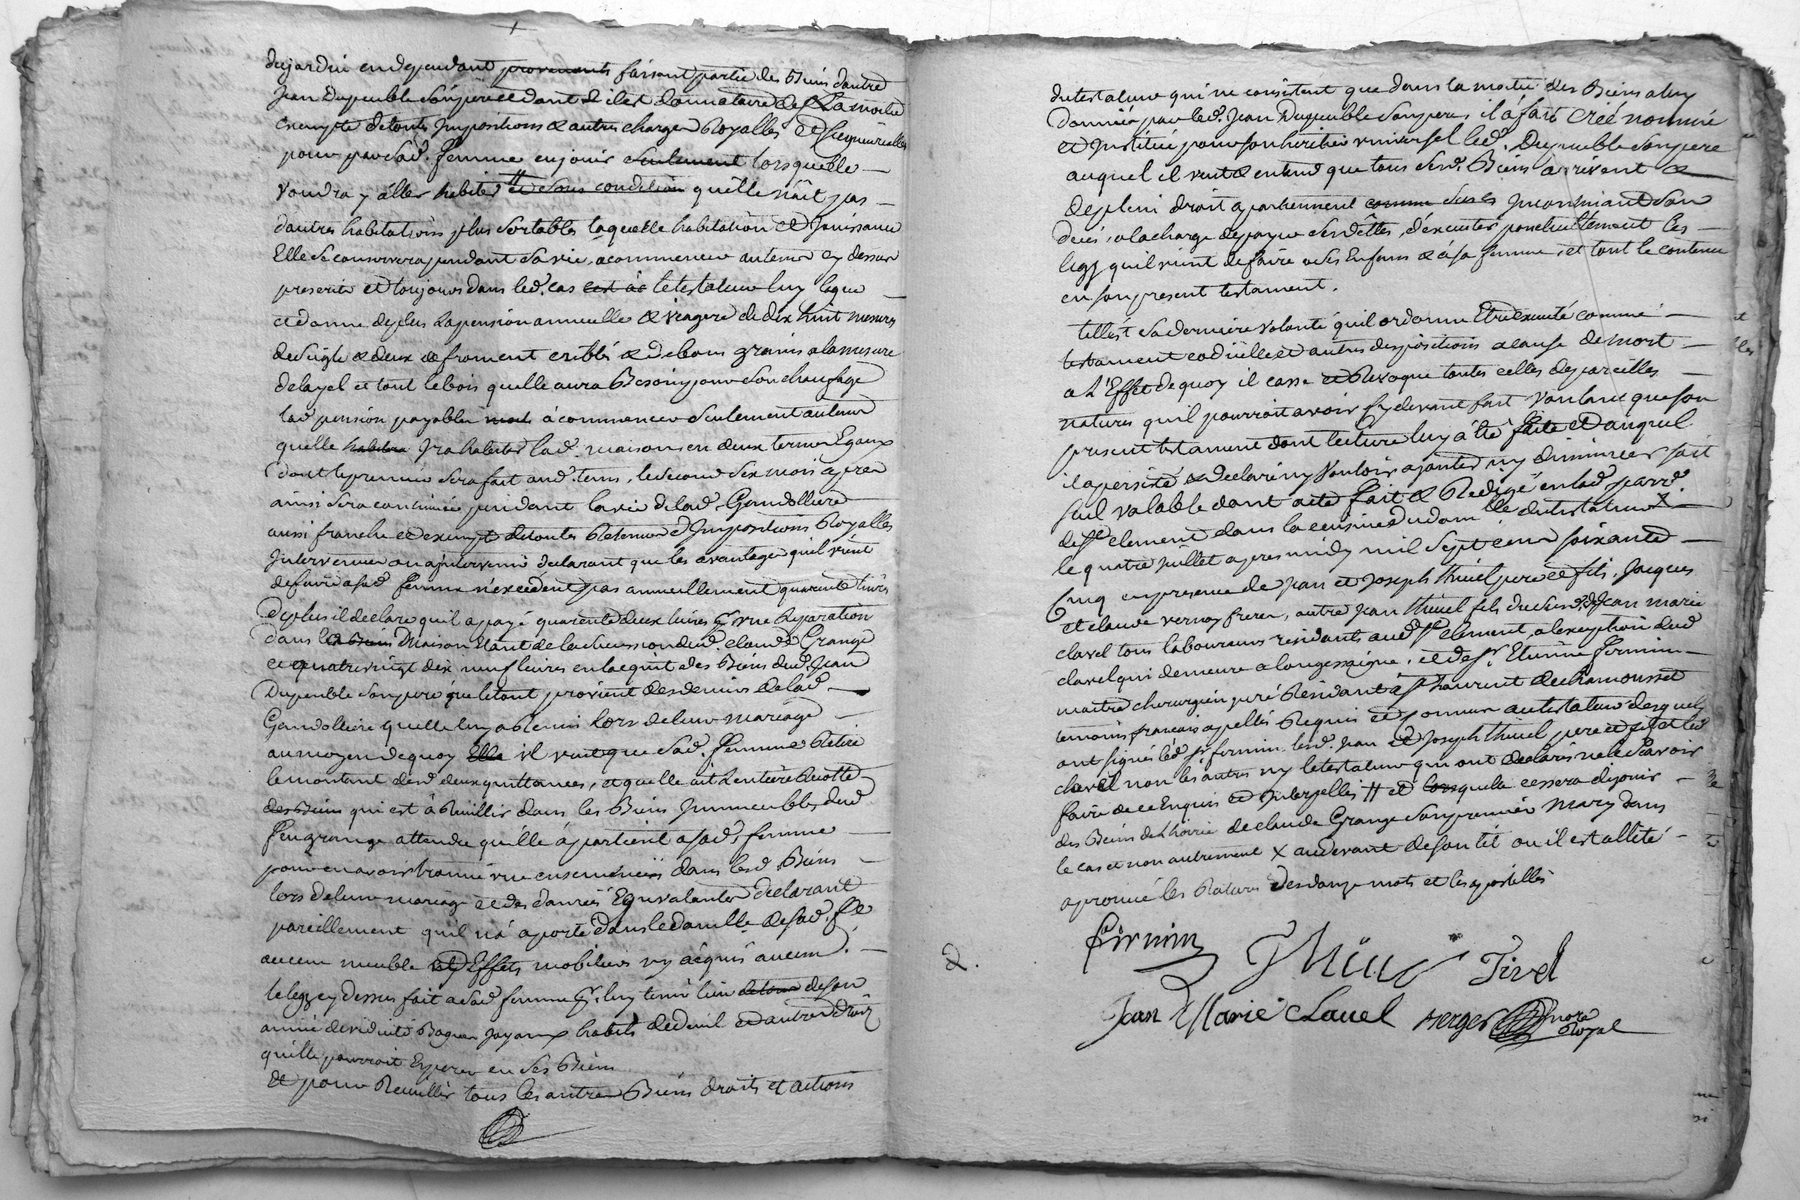 dujardin en dependant provenants faisant partie des Biens dautre
Jean Dupeuble Son pere et dont il est donnataire de la moitié
exempte de touts Impositions & autres charges Royalles et Seigneurialles
pour par Sad. femme en jouir seulement lorsquelle
voudra y aller habiter # et sous condition qu'elle n'ait pas
d'autres habitations plus sortables laquelle habitation et Jouissance
Elle Se conservera pendant Sa vie, a commencer au terme cy dessus
prescrit et toujours dans led. cas le testateur luy legue
et donne de plus la pension annuelle & viagere de dix huit mesures
de Seigle & deux de froment criblés & de bons grains a la mesure
delayel et tout le bois quelle aura Besoin pour Son chaufage
lad. pension payable à commencer Seulement au tems
quelle habitera Ira habiter lad. maison en deux termes Egaux
dont le premier Sera fait aud. tems, le Second Six mois apres
ainsi Sera continuée pendant la vie de lad. Gandolliere
aussi franche et exempte de toutes Retenues et Impositions Royalles
Intervenues ou a intervenir declarant que les avantages quil vient
de faire a sad. femme n'excedent pas annuellement quarente livres
De plus il declare qu'il a payé quarente deux livres pr. une Reparation
dans la Maison Etant de la succession dud. claude Grange
et quatre vingt dix neuf livres en lacquit des Biens dud. Jean
Dupeuble Son pere que le tout provient des deniers de lad.
Gandolliere quelle luy a Remis lors de leur mariage
au moyen de quoy Elle il veut que Sad. femme Retire
le montant desd. deux quittances, et quelle ait L'entiere Recolte
des Biens qui est à Receuillir dans les Biens Immeubles dud.
feu grange attendu quelle apartient a sad. femme
pour en avoir trouvé une ensemencée dans lesd. Biens
lors de leur mariage et des danrées Equivalantes Declarant
pareillement qu'il n'a aporté dans le domlle. de sad. fe.
aucun meuble et Effets mobiliers ny acquis aucun.
le legs cy dessus fait a Sad. femme pr. luy tenir lieu de son
année de viduité Bagues Joyaux habits de deuil et autres droits
qu'elle pourroit Esperer en Ses Biens
Et pour Receuillir tous les autres Biens droits et actions
du testateur qui ne consistent que dans la moitié des Biens a luy
donnés par led. Jean Dupeuble Son pere, il a fait créé nommé
et Institué pour Son heritier universel led. Dupeuble Son pere
auquel il veut & entend que tous Sesd. Biens arrivent &
de plein droit apartiennent comme Incontinant Son
deces, a la charge de payer Ses dettes, d'executer ponctuellement les
legs quil vient de faire a ses Enfans & à sa femme, et tout le contenu
en son present testament.
telle est Sa derniere volonté quil ordonne Etre executé comme
testament codicille et autres dispositions a cause de mort
a L'Effet de quoy il casse et Revoque toutes celles de pareilles
natures qu'il pourroit avoir cy devant fait Voulant que son
present testament dont lecture luy a été faite et auquel
il a persisté & declaré ny vouloir ajouter ny diminuer soit
seul valable dont acte fait & Redigé en lad. parr.
de St. clement dans la cuisine du domlle. du testateur X
le quatre Juillet apres midy mil Sept cent Soixante
Cinq en presence de Jean et Joseph thivel pere et fils, Jacques
et claude vernay freres, autre Jean thivel fils dud. Jean marie
clavel tous laboureurs residants aud. St. clement, a l'exeption dud.
clavel qui demeure a longessaigne, et de Sr. Etienne firmin
maitre chirurgien juré Residant à St. Laurent de chamousset
temoins françois apellés Requis et connus au testateur desquels
ont signés led. Sr. firmin, lesd. Jean et Joseph thivel pere et fils et led.
clavel non les autres ny le testateur qui ont declarés ne le Scavoir
faire de ce Enquis et Interpellés # et lorsquelle cessera dejouir
des Biens de L'hoirie de claude Grange Son premier mary dans
le cas et non autrement X au devant de son lit ou il est allité
aprouvé les Ratures desdouze mots et les apostilles
firmin
Thivel
Tivel
Jean Marie Clavel
Berger
nore
Royal
2.